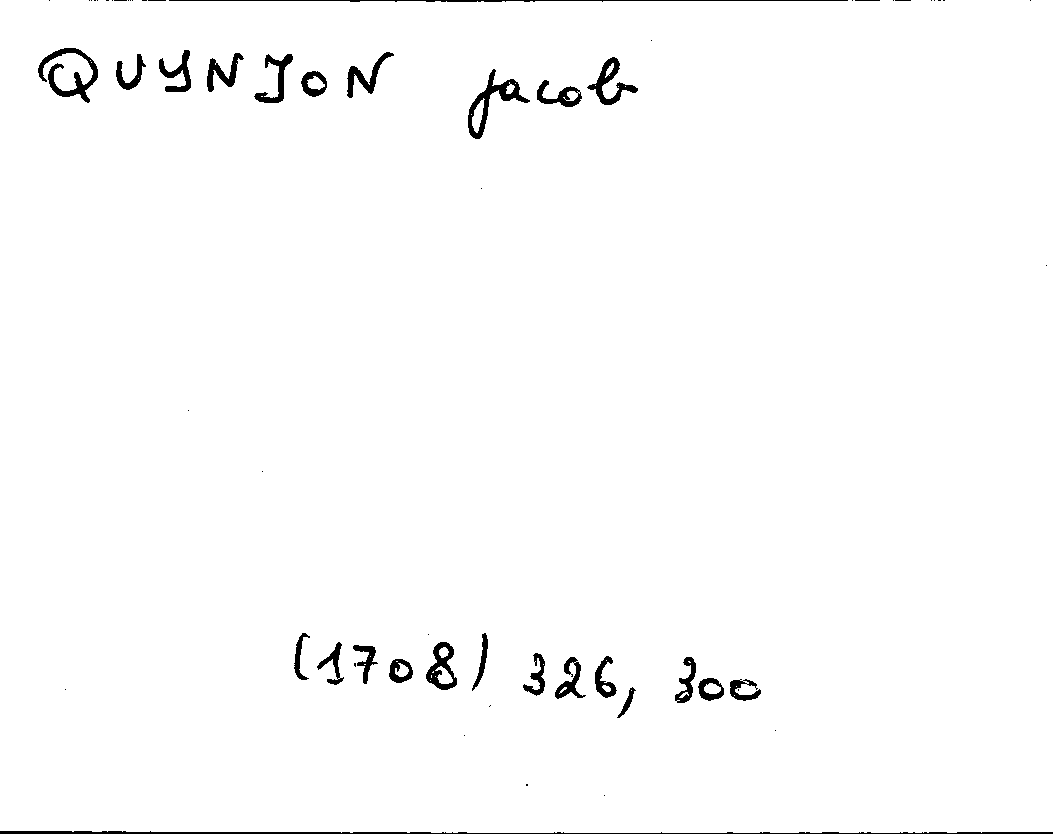 QUYNJON Jacob
(1708) 326, 300